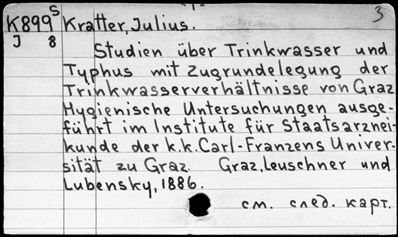 3
K899 S Kratter, Julius.
J 8
Studien über Trinkwasser und
Typhus mit Zugrundelegung der
Trinkwasserverhältnisse von Graz
Hygienische Untersuchungen ausge-
führt im Institute für Staatsarznei-
kunde der k.k. Carl-Franzens Univer-
sität zu Graz. Graz, Leuschner und
Lubensky, 1886.
см. след. карт.